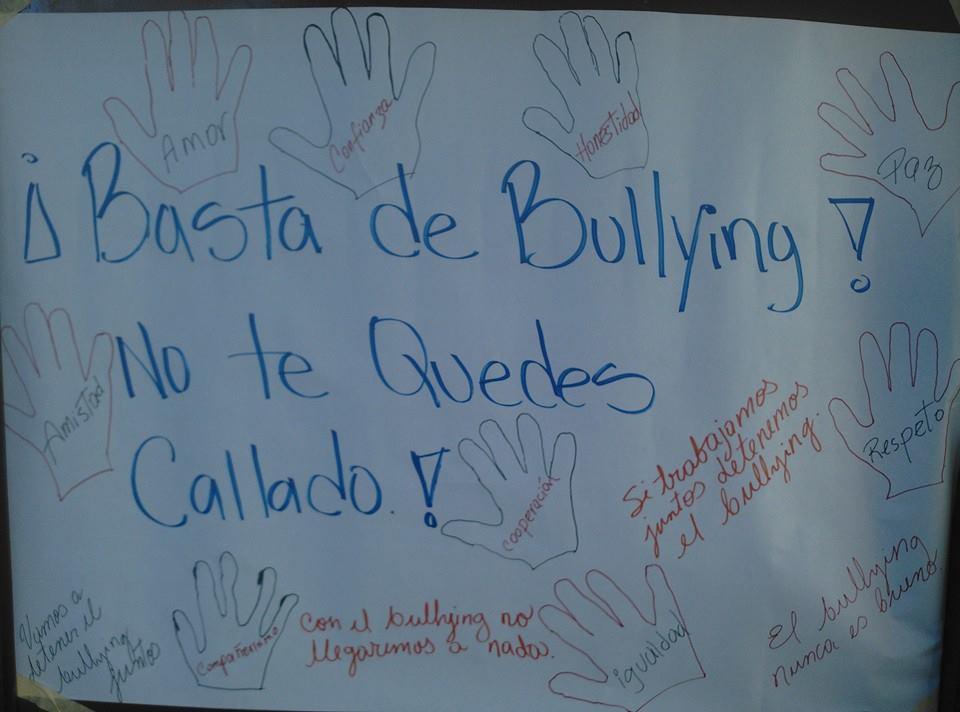 Amor
Confianza
Honestidad
Paz
¡Basta de Bullying!
No te Quedes
Callado.!
Amistad
Respeto
cooperación
Si trabajamos
juntos detenemos
el bullying.
Vamos a
detener el
bullying
juntos
Compañerismo
con el bullying no
llegaremos a nada.
igualdad
El bullying
nunca es bueno.